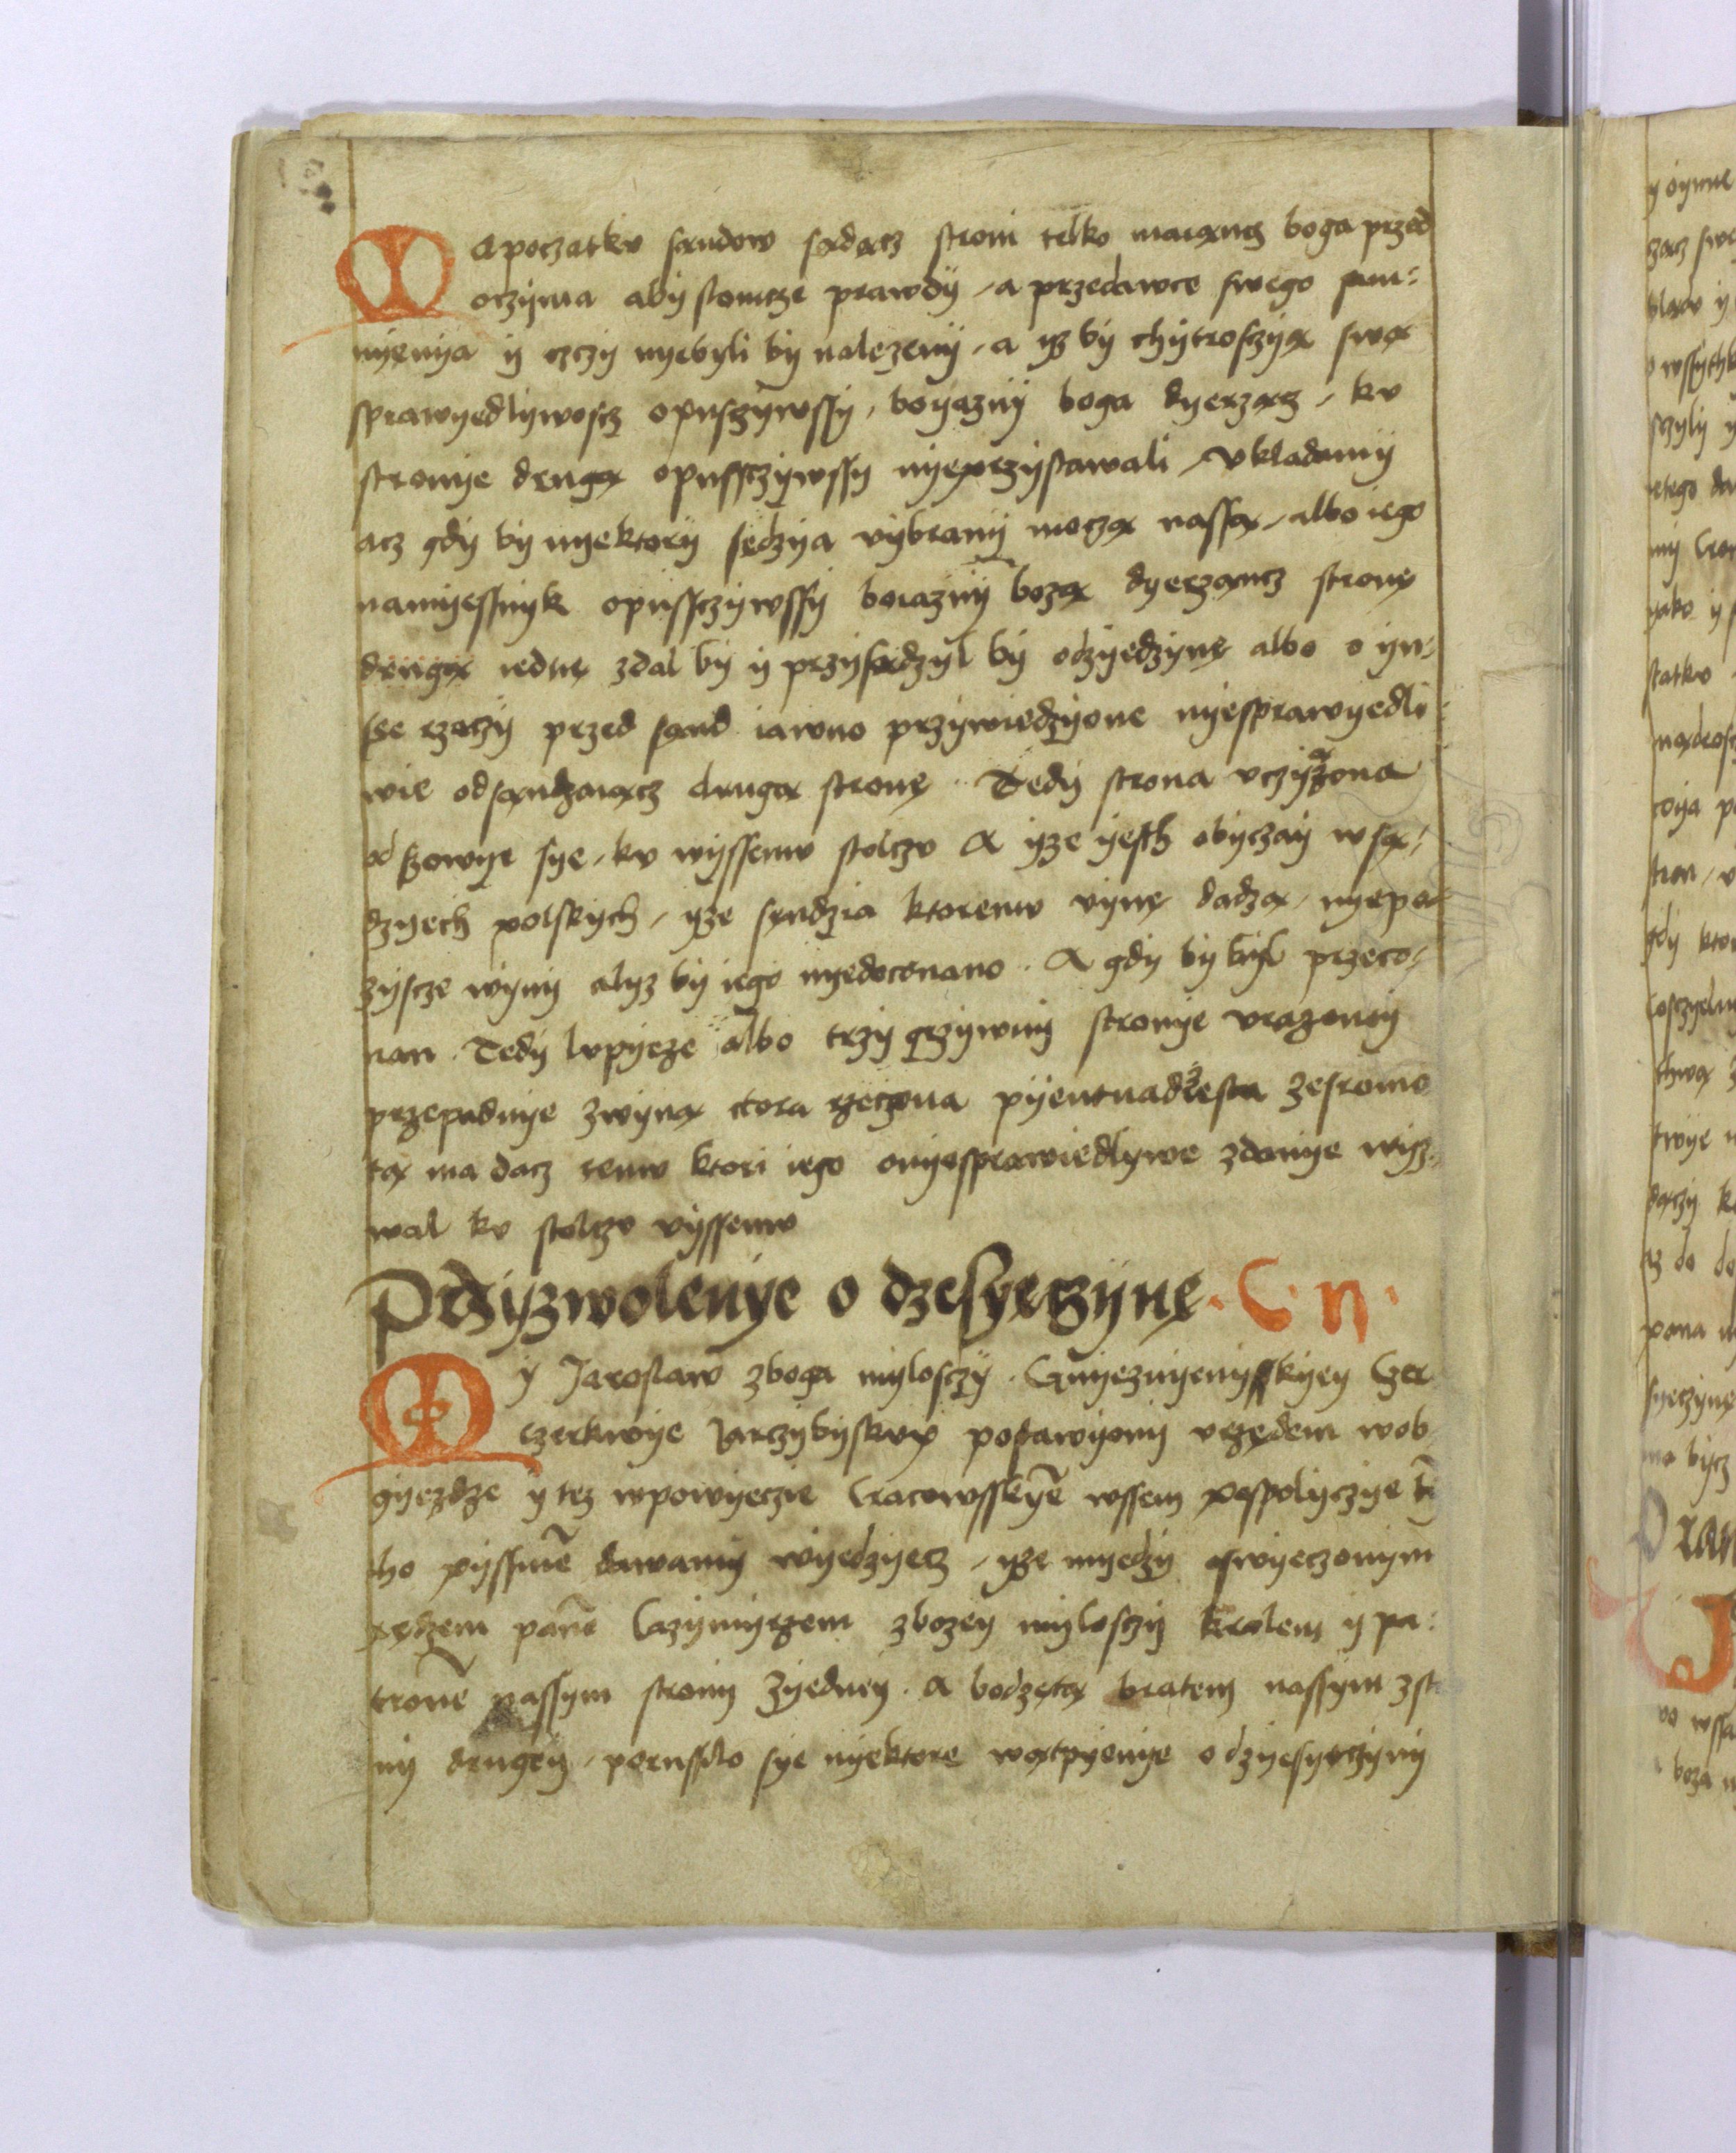 Napoczatkv sandow sądącz stroni telko maiąncz boga przed
oczyma aby stomcze prawdy, a przedawce swego sum:
nyenya y czczy nyebyli by nalezeny, a yz by chytrosczyą swą
sprawyedlywoscz opusczywssy, boyazny boga dyerzącz, kv
stronye drugą opussczywssy nyeprzystawali, Vkladamy
acz gdy by nyektory sędzya vybrany moczą nassą, albo iego
namyesnyk opussczywssy boiazny bozą dyerzancz stronę
drugą iednę zdal by y przysądzyl by odzyedzynę albo o yn:
sse rzeczy przed sąnd iawno przywiedzyone nyesprawyedli
wie odsąndzaiącz drugą stronę. Tedy strona vczyązona
od ssowye sye, kv wyssemv stolczv A yze yesth obyczay w są:
dzyech polskych, yze sendzia ktoremv vynę dadzą, nyepo
zyscze wyny alyz by iego nyedoconano. A gdy by byl przeco:
nan. Tedy lvpyeze albo trzy grzywny stronye vrazoney
przepadnye zwyną ctora rzeczona pyentnadzesta zesromo
tą ma dacz temv ktori iego onyesprawiedlywe zdanye wisz,
wal kv stolczv vyssemv
Przyzwolenye o dzesyęczynę. C. n.
My Jaroslaw zboga mylosczy. Gnyeznyenyskyey Czer
czerkwye Jarczybyskvp postawyony vrzędem wob
gyezdze y tez wpowyeczie Cracowsskyē wssem pospolyczye tē
tho pyssmē dawamy wyedzyecz, yze myedzy oswyeczonym
xędzem panē Cazymyrzem zbozey mylosczy krolem y pa:
tronē nassym strony zyedney. A bodzętą bratem nassym zst
ny drugey, porussilo sye nyektore wątpyenye o dzyesyęczyny